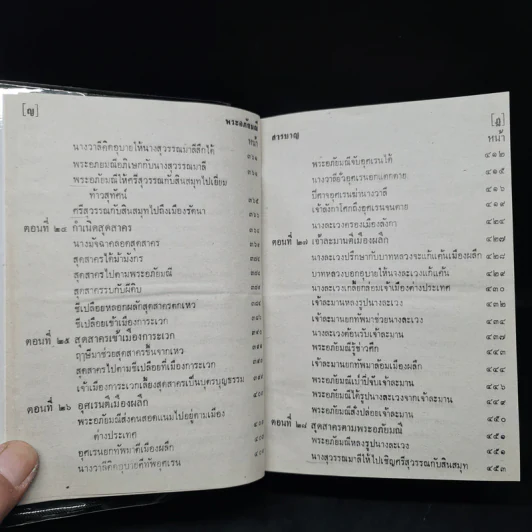 [ญ]
พระอภัยมณี
หน้า
นางวาลีคิดอุบายให้นางสุวรรณมาลีสึกได้
พระอภัยมณีอภิเษกกับนางสุวรรณมาลี
พระอภัยมณีให้ศรีสุวรรณกับสินสมุทไปเยี่ยม
ท้าวสุทัศน์
ศรีสุวรรณกับสินสมุทไปถึงเมืองรัตนา
ตอนที่ ๒๔ กำเนิดสุดสาคร
นางมัจฉาคลอดสุดสาคร
สุดสาครได้ม้ามังกร
สุดสาครไปตามพระอภัยมณี
สุดสาครรบกับผีดิบ
ชีเปลือยหลอกผลักสุดสาครตกเหว
ชีเปลือยเข้าเมืองการะเวก
ตอนที่ ๒๕ สุดสาครเข้าเมืองการะเวก
ฤๅษีมาช่วยสุดสาครขึ้นจากเหว
สุดสาครไปตามชีเปลือยที่เมืองการะเวก
เจ้าเมืองการะเวกเลี้ยงสุดสาครเป็นบุตรบุญธรรม
ตอนที่ ๒๖ อุศเรนตีเมืองผลึก
พระอภัยมณีส่งคนสอดแนมไปอยู่ตามเมือง
ต่างประเทศ
อุศเรนยกทัพมาตีเมืองผลึก
นางวาลีคิดอุบายตีทัพอุศเรน
สารบาญ
[ฎ]
หน้า
พระอภัยมณีจับอุศเรนได้ ๔๑๒
นางวาลียั่วอุศเรนอกแตกตาย
ปีศาจอุศเรนฆ่านางวาลี
เจ้าลังกาโศกถึงอุศเรนจนตาย
นางละเวงครองเมืองลังกา ๔๒๔
ตอนที่ ๒๗ เจ้าละมานตีเมืองผลึก ๔๒๗
นางละเวงปรึกษากับบาทหลวงจะแก้แค้นเมืองผลึก ๔๒๘
บาทหลวงบอกอุบายให้นางละเวงแก้แค้น ๔๒๙
นางละเวงเกลี้ยกล่อมเจ้าเมืองต่างประเทศ ๔๓๐
เจ้าละมานหลงรูปนางละเวง ๔๓๒
เจ้าละมานยกทัพมาช่วยนางละเวง ๔๓๔
นางละเวงต้อนรับเจ้าละมาน ๔๓๗
พระอภัยมณีรู้ข่าวศึก ๔๔๓
เจ้าละมานยกทัพมาล้อมเมืองผลึก ๔๔๔
พระอภัยมณีเป่าปี่จับเจ้าละมาน ๔๔๖
พระอภัยมณีได้รูปนางละเวงจากเจ้าละมาน ๔๔๙
พระอภัยมณีสั่งปล่อยเจ้าละมาน ๔๕๐
ตอนที่ ๒๘ สุดสาครตามพระอภัยมณี ๔๕๑
พระอภัยมณีหลงรูปนางละเวง ๔๕๑
นางสุวรรณมาลีให้ไปเชิญศรีสุวรรณกับสินสมุท ๔๕๓